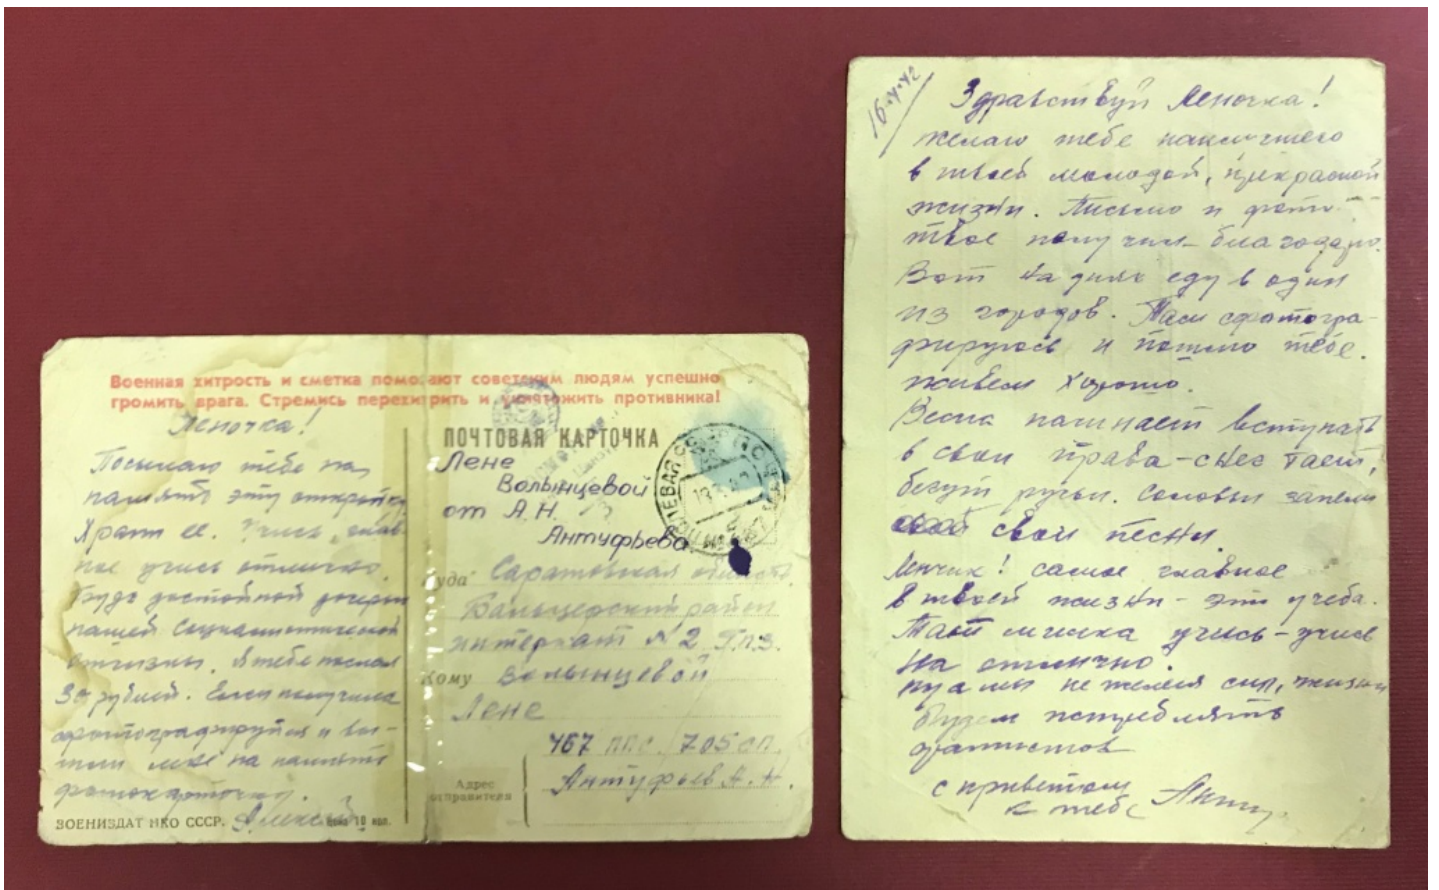 Военная хитрость и сметка помогают советским людям успешно
громить врага. Стремись перехитрить и уничтожить противника!
Леночка!
Посылаю тебе на
память эту открытку
Храни ее. Учись, глав-
ное учись отлично.
Будь достойной дочерью
нашей социалистической
отчизны. Я тебе послал
30 рублей. Если получила
сфотографируйся и вы-
шли мне на память
фотокарточку.
ВОЕНИЗДАТ НКО СССР.
Цена 10 коп.
ПОЧТОВАЯ КАРТОЧКА
Лене
Волынцевой
от А.Н.
Антуфьева
Куда Саратовская область
Бальцерский район
интернат №2 П.п.З.
Кому Волынцевой
Лене
467 ППС. 705 СП.
Адрес
отправителя
Антуфьев А. Н.
16.4.42
Здравствуй Леночка!
желаю тебе наилучшего
в твоей молодой, прекрасной
жизни. Письмо и фото
твое получил благодарю.
Вот на днях еду в один
из городов. Там сфотогра-
фируюсь и пошлю тебе.
живем хорошо.
Весна начинает вступать
в свои права - снег тает,
бегут ручьи. Соловьи запели
свои песни.
Ленчик! самое главное
в твоей жизни - это учеба.
учись - учись
на отлично.
ну а мы не жалея сил, жизни
будем истреблять
фашистов
с приветом
к тебе